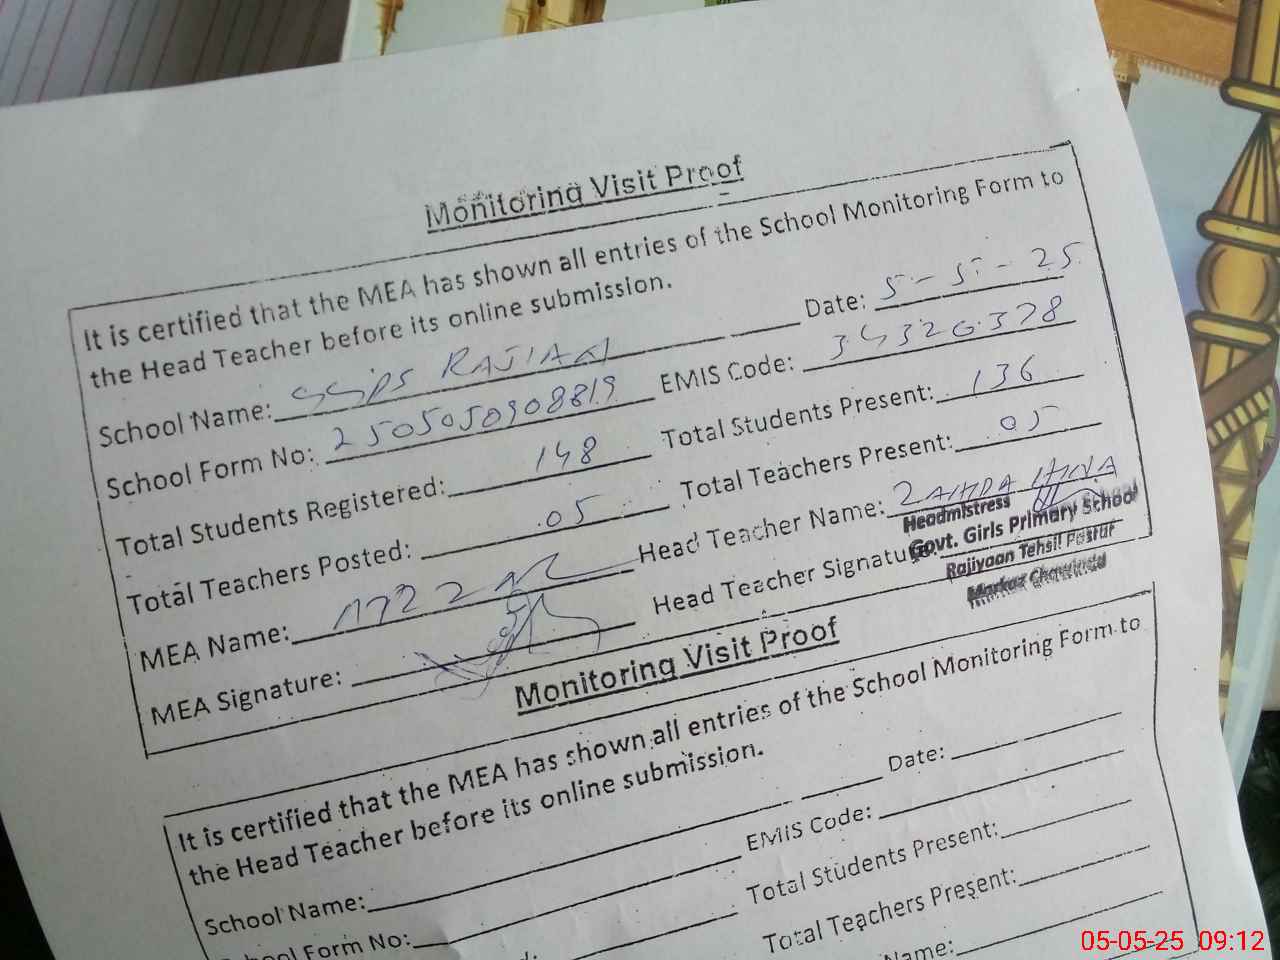 Monitoring Visit Proof
It is certified that the MEA has shown all entries of the School Monitoring Form to
the Head Teacher before its online submission.
Date: 5-5-25
School Name: GGPS RAJIAN
EMIS Code: 34320378
School Form No: 2505050908819
Total Students Present: 136
Total Students Registered: 148
Total Teachers Present: 05
Total Teachers Posted: 05
Head Teacher Name: ZAHIDA HINA
MEA Name:
Head Teacher Signature
Headmistress
Govt. Girls Primary School
Rajiyaan Tehsil Pasrur
Markaz Chawinda
MEA Signature:
Monitoring Visit Proof
It is certified that the MEA has shown all entries of the School Monitoring Form to
the Head Teacher before its online submission.
Date:
School Name:
EMIS Code:
Form No:
Total Students Present:
Total Teachers Present:
Name:
05-05-25 09:12